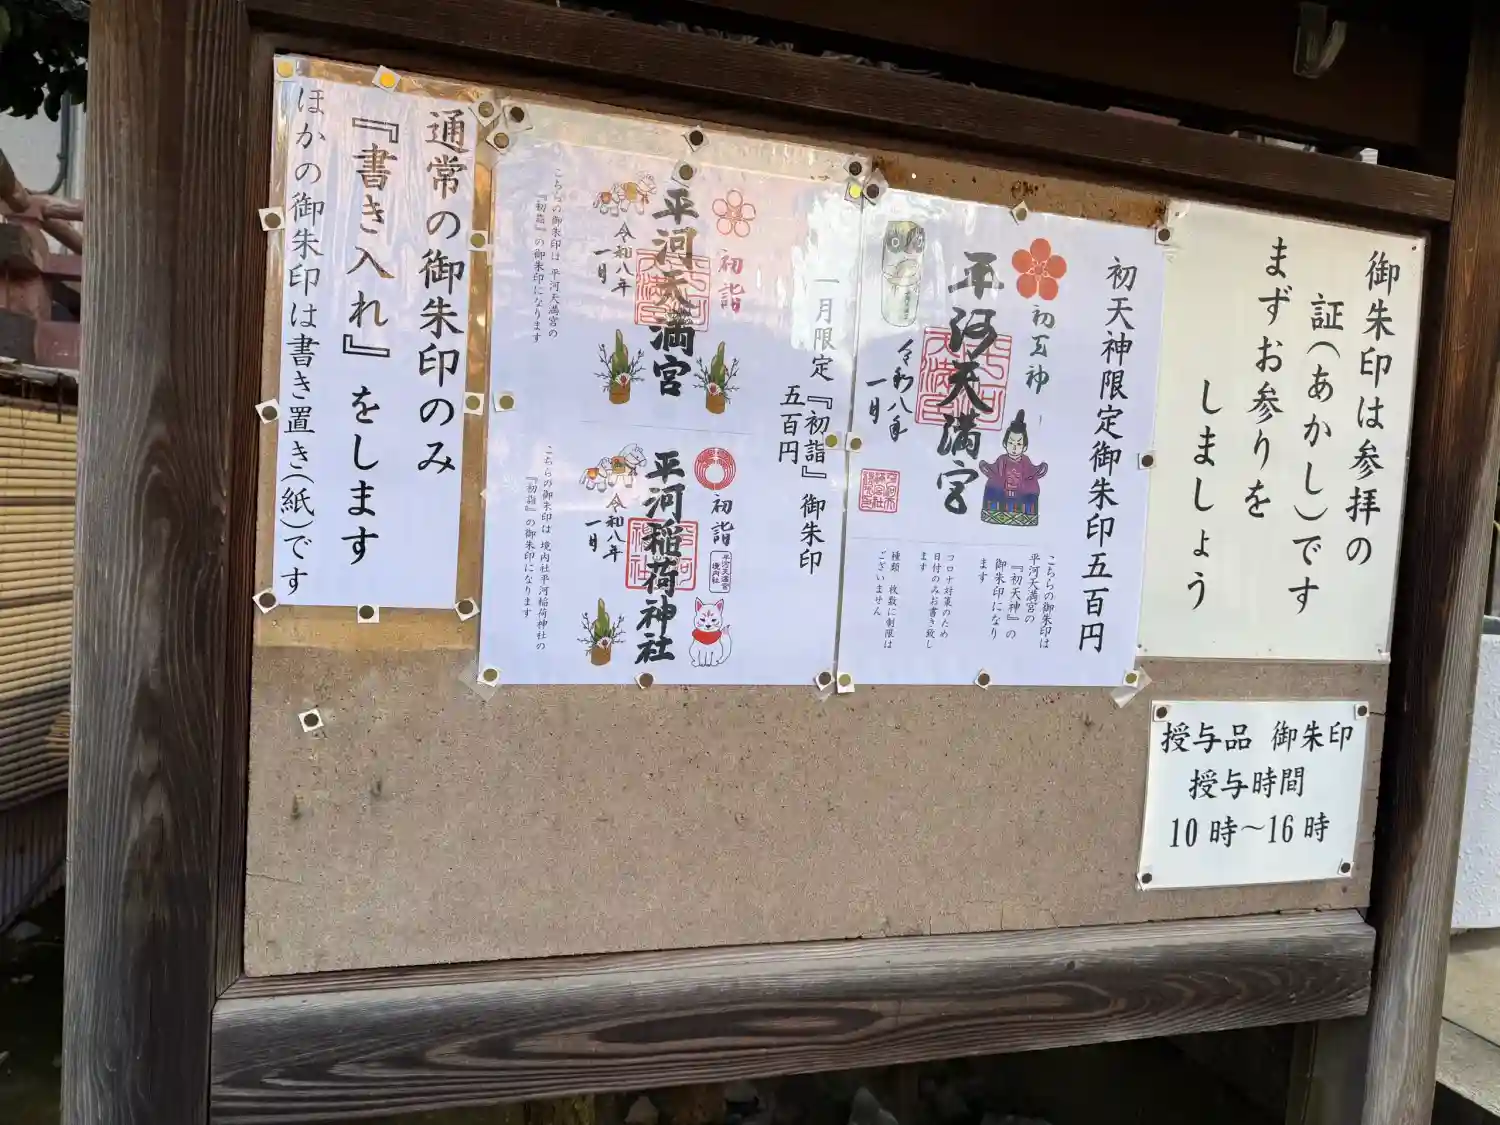 御朱印は参拝の
証(あかし)です
まずお参りを
しましょう
授与品 御朱印
授与時間
10時～16時
初天神限定御朱印五百円
初天神
平河天満宮
令和八年
一月
こちらの御朱印は
平河天満宮の
『初天神』の
御朱印になり
ます
コロナ対策のため
日付のみお書き致し
ます
種類 枚数に制限は
ございません
一月限定『初詣』御朱印
五百円
初詣
平河天満宮
令和八年
一月
こちらの御朱印は 平河天満宮の
『初詣』の御朱印になります
初詣
平河天満宮
境内社
平河稲荷神社
令和八年
一月
こちらの御朱印は 境内社平河稲荷神社の
『初詣』の御朱印になります
通常の御朱印のみ
『書き入れ』をします
ほかの御朱印は書き置き(紙)です